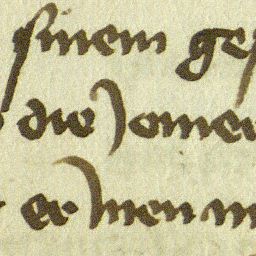 sinem ges
die Jomer
er Jmen m